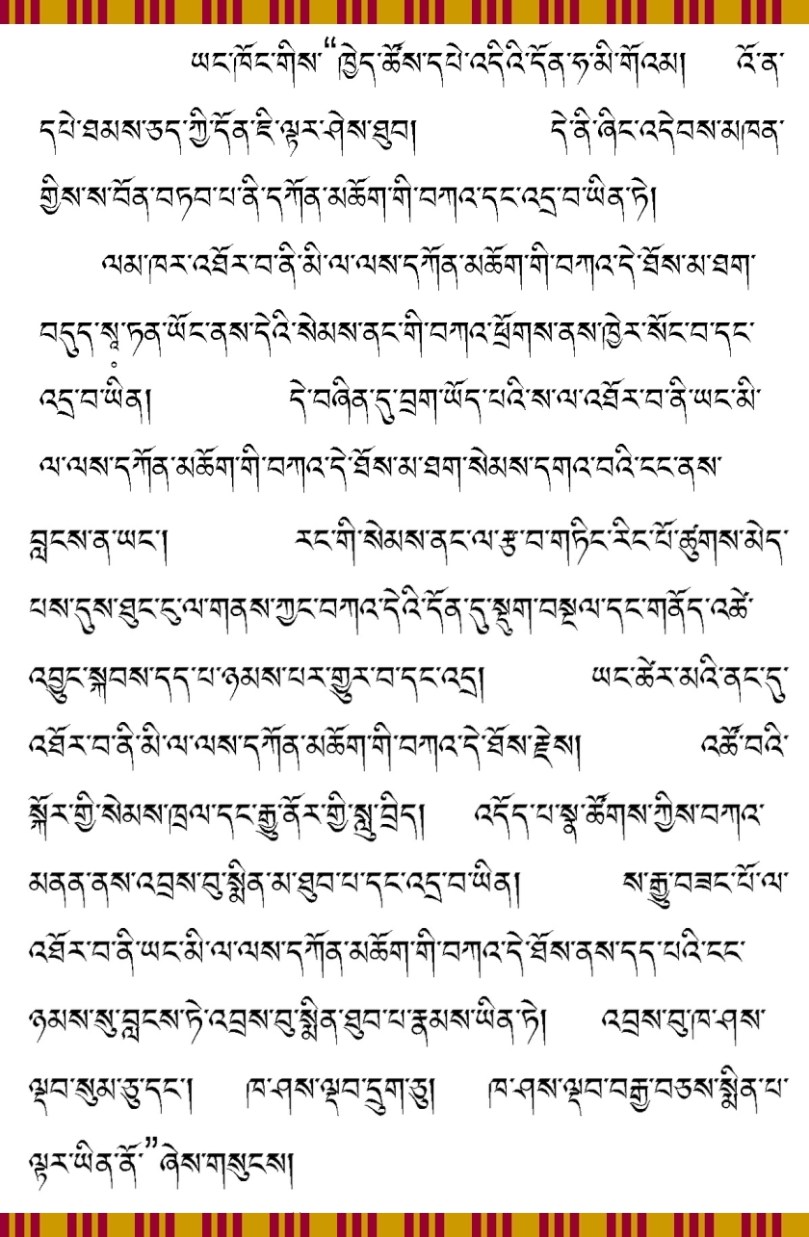 ཡང་ཁོང་གིས་“ཁྱེད་ཚོས་དཔེ་འདིའི་དོན་ཧ་མི་གོའམ། འོ་ན་
དཔེ་ཐམས་ཅད་ཀྱི་དོན་ཇི་ལྟར་ཤེས་ཐུབ། དེ་ནི་ཞིང་འདེབས་མཁན་
གྱིས་ས་བོན་བཏབ་པ་ནི་དཀོན་མཆོག་གི་བཀའ་དང་འདྲ་བ་ཡིན་ཏེ།
ལམ་ཁར་འཐོར་བ་ནི་མི་ལ་ལས་དཀོན་མཆོག་གི་བཀའ་དེ་ཐོས་མ་ཐག་
བདུད་སཱ་ཏན་ཡོང་ནས་དེའི་སེམས་ནང་གི་བཀའ་ཕྲོགས་ནས་ཁྱེར་སོང་བ་དང་
འདྲ་བ་ཡིན། དེ་བཞིན་དུ་བྲག་ཡོད་པའི་ས་ལ་འཐོར་བ་ནི་ཡང་མི་
ལ་ལས་དཀོན་མཆོག་གི་བཀའ་དེ་ཐོས་མ་ཐག་སེམས་དགའ་བའི་ངང་ནས་
བླངས་ན་ཡང་། རང་གི་སེམས་ནང་ལ་རྩ་བ་གཏིང་རིང་པོ་ཚུགས་མེད་
པས་དུས་ཐུང་ངུ་ལ་གནས་ཀྱང་བཀའ་དེའི་དོན་དུ་སྡུག་བསྔལ་དང་གནོད་འཚེ་
འབྱུང་སྐབས་དད་པ་ཉམས་པར་གྱུར་བ་དང་འདྲ། ཡང་ཚེར་མའི་ནང་དུ་
འཐོར་བ་ནི་མི་ལ་ལས་དཀོན་མཆོག་གི་བཀའ་དེ་ཐོས་རྗེས། འཚོ་བའི་
སྐོར་གྱི་སེམས་ཁྲལ་དང་རྒྱུ་ནོར་གྱི་སླུ་བྲིད། འདོད་པ་སྣ་ཚོགས་ཀྱིས་བཀའ་
མནན་ནས་འབྲས་བུ་སྨིན་མ་ཐུབ་པ་དང་འདྲ་བ་ཡིན། ས་རྒྱུ་བཟང་པོ་ལ་
འཐོར་བ་ནི་ཡང་མི་ལ་ལས་དཀོན་མཆོག་གི་བཀའ་དེ་ཐོས་ནས་དད་པའི་ངང་
ཉམས་སུ་བླངས་ཏེ་འབྲས་བུ་སྨིན་ཐུབ་པ་རྣམས་ཡིན་ཏེ། འབྲས་བུ་ཁ་ཤས་
ལྡབ་སུམ་ཅུ་དང་། ཁ་ཤས་ལྡབ་དྲུག་ཅུ། ཁ་ཤས་ལྡབ་བརྒྱ་བཅས་སྨིན་པ་
ལྟར་ཡིན་ནོ་”ཞེས་གསུངས།